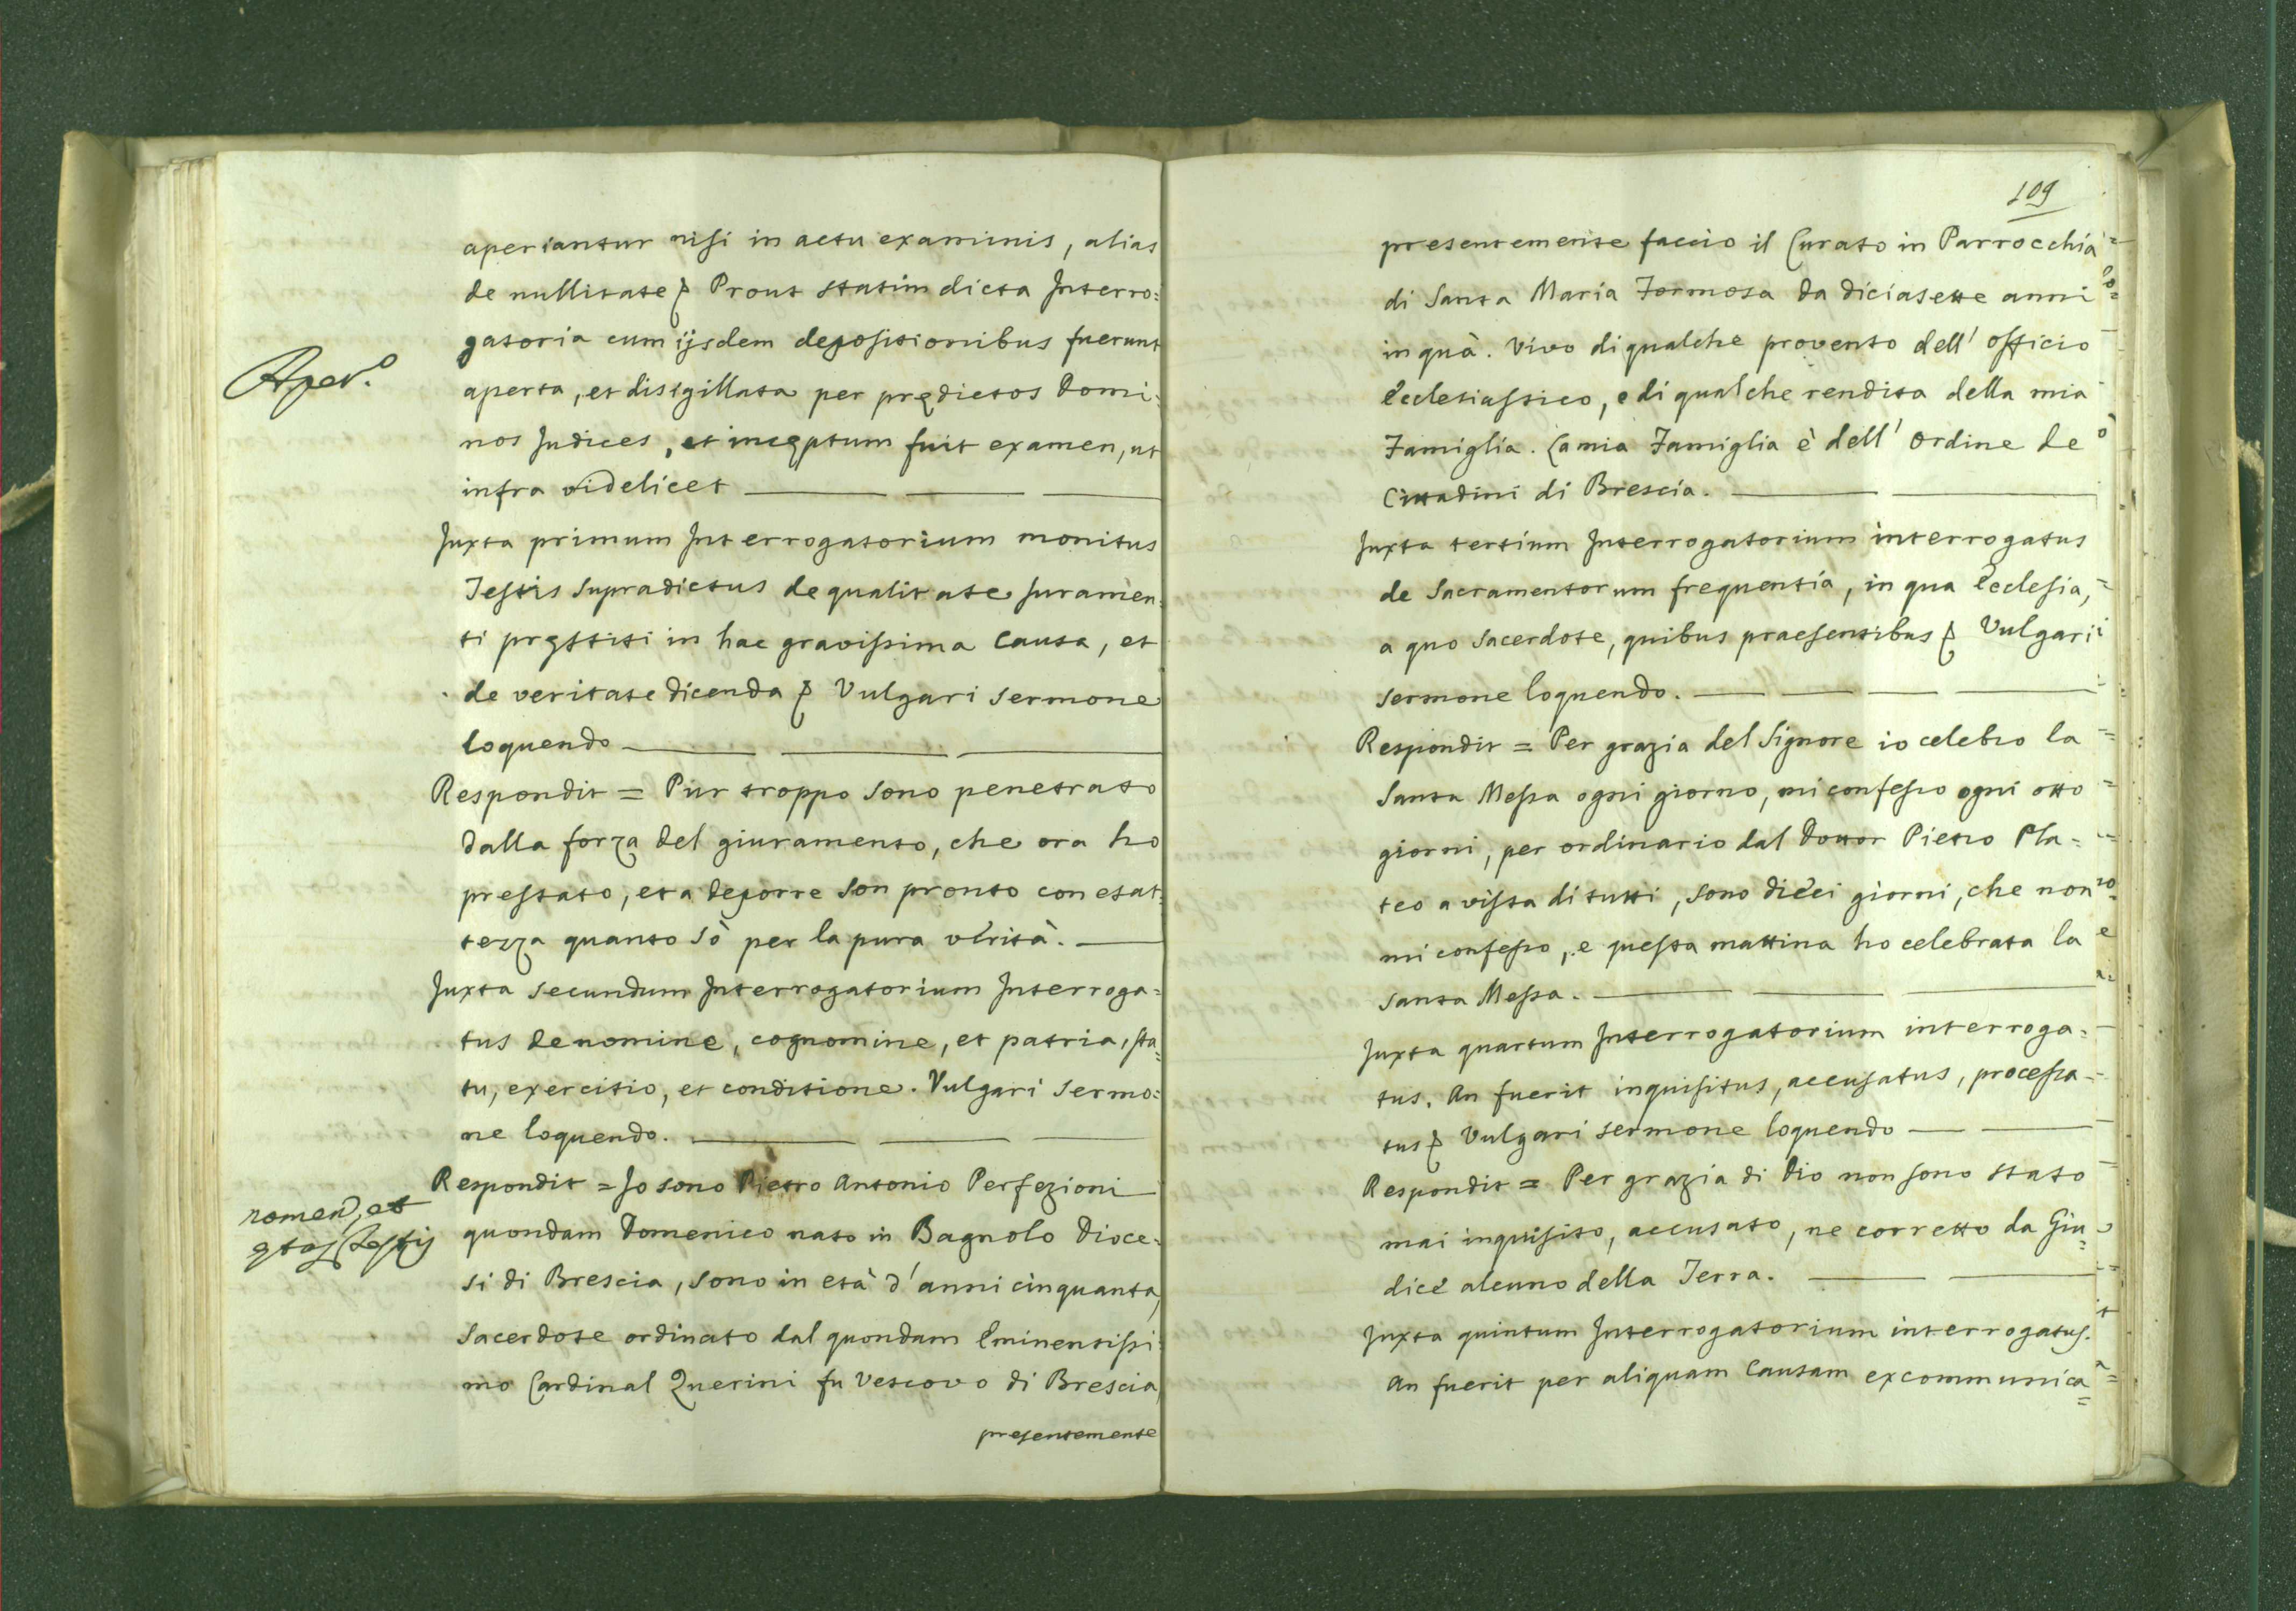 aperiantur nisi in actu examinis, alias
de nullitate &. Prout statim dicta Interro=
gatoria cum ijsdem depositionibus fuerunt
Aper.º
aperta, et dissigillata per prędictos Domi=
nos Judices, et incęptum fuit examen, ut
infra videlicet
Juxta primum Interrogatorium monitus
Testis supradictus de qualitate Juramen=
ti pręstiti in hac gravissima Causa, et
de veritate dicenda &. Vulgari sermone
loquendo
Respondit = Pur troppo sono penetrato
dalla forza del giuramento, che ora ho
prestato, et a deporre son pronto con esat=
tezza quanto sò per la pura verità.
Juxta secundum Interrogatorium Interroga=
tus de nomine, cognomine, et patria, sta=
tu, exercitio, et conditione. Vulgari sermo=
ne loquendo.
Respondit = Io sono Pietro Antonio Perfezioni
nomen, et
ętas Testis
quondam Domenico nato in Bagnolo Dioce=
si di Brescia, sono in età d'anni cinquanta,
Sacerdote ordinato dal quondam Eminentissi=
mo Cardinal Querini fu Vescovo di Brescia,
presentemente
109
presentemente faccio il Curato in Parrocchia
di Santa Maria Formosa da diciasette anni
in quà. Vivo di qualche provento dell' officio
Ecclesiastico, e di qualche rendita della mia
Famiglia. La mia Famiglia è dell' ordine de
Cittadini di Brescia.
Juxta tertium Interrogatorium interrogatus
de Sacramentorum frequentia, in qua Ecclesia,
a quo Sacerdote, quibus praesentibus &. Vulgari
sermone loquendo.
Respondit = Per grazia del Signore io celebro la
Santa Messa ogni giorno, mi confesso ogni otto
giorni, per ordinario dal Dottor Pietro Pla=
teo a vista di tutti, sono dieci giorni, che non
mi confesso, e questa mattina ho celebrata la
Santa Messa.
Juxta quartum Interrogatorium interroga=
tus. An fuerit inquisitus, accusatus, processa=
tus &. Vulgari sermone loquendo
Respondit = Per grazia di Dio non sono stato
mai inquisito, accusato, ne corretto da Giu=
dice alcuno della Terra.
Juxta quintum Interrogatorium interrogatus.
An fuerit per aliquam Causam excommunica=